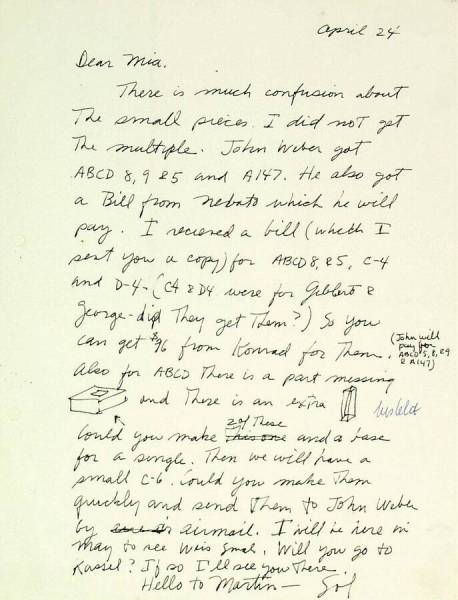 April 24
Dear Mia.
There is much confusion about
The small pieces. I did not get
The multiple. John Weber got
ABCD 8, 9 & 5 and A147. He also got
a Bill from Nebato which he will
pay. I recieved a bill (which I
sent you a copy) for ABCD 8, & 5, C-4
and D-4- (C4 & D4 were for Gilbert &
George - did They get Them?) So you
can get $96 from Konrad for Them.
(John will
pay for
ABCD 5, 8, & 9
& A147)
Also for ABCD There is a part missing
and There is an extra
Could you make This one 2 of These and a base
for a single. Then we will have a
small C-6. Could you make Them
quickly and send Them to John Weber
by airmail. I will be here in
may to see Will you go to
Kassel? If so I'll see you There.
Hello to Martin —
Sol